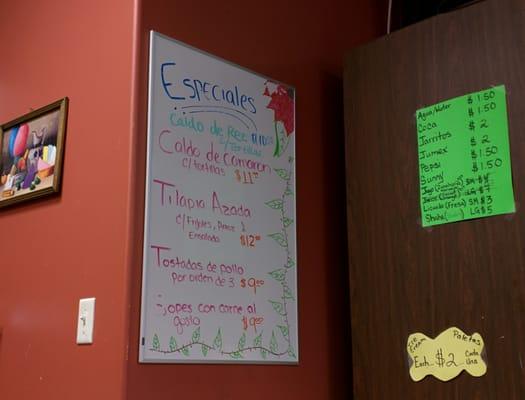 Especiales
Caldo de Rez $10.00
c/ Tortillas
Caldo de Camaron
c/ tortillas $11.00
Tilapia Azada
c/ Frijoles, Arroz y
Ensalada $12.00
Tostadas de pollo
por orden de 3 $9.00
Sopes con carne al
gusto $9.00
Agua/Water $1.50
Coca $1.50
Jarritos $2
Jumex $2
Pepsi $1.50
Sunny $1.50
Jugo
SM $
LG $7
Licuado (Fresa) SM $3
Shake LG $5
Ice Cream Paletas
Each $2 Cada
Una